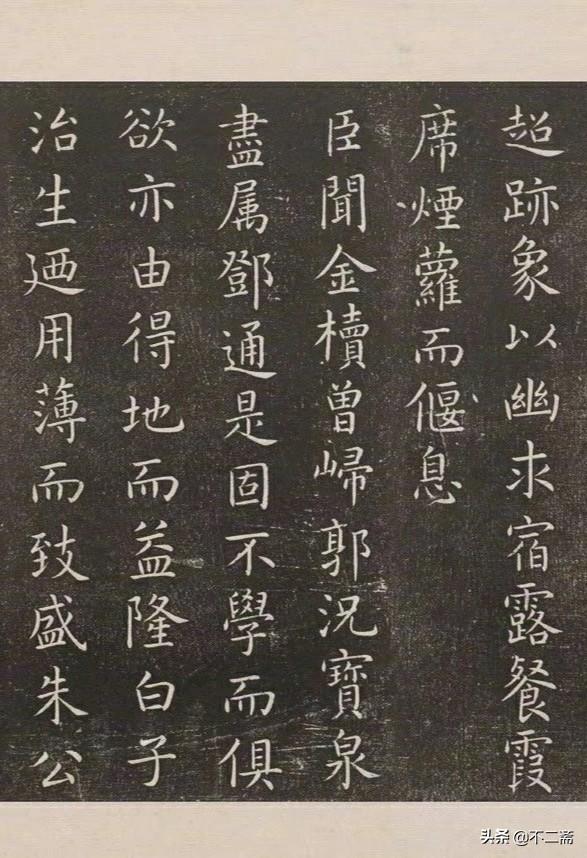 超跡象以幽求宿露餐霞
席煙蘿而偃息
臣聞金櫝曽㱕郭況寶泉
盡属鄧通是固不學而俱
欲亦由得地而益隆白子
治生廼用薄而致盛朱公
头条 @不二斋